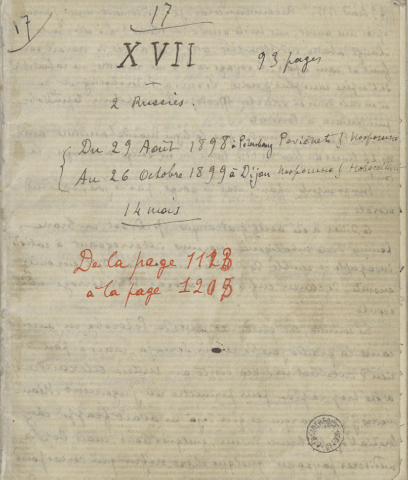 17
17
XVII
93 pages
2 Russies.
Du 29 Août 1898 à Pétersbourg
Au 26 Octobre 1899 à Dijon
14 mois
De la page 1123
à la page 1205